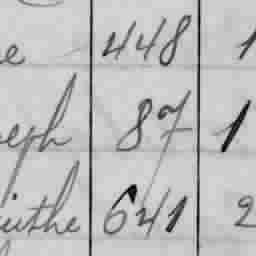 e 448 1
eph 87 1
uthe 641 2